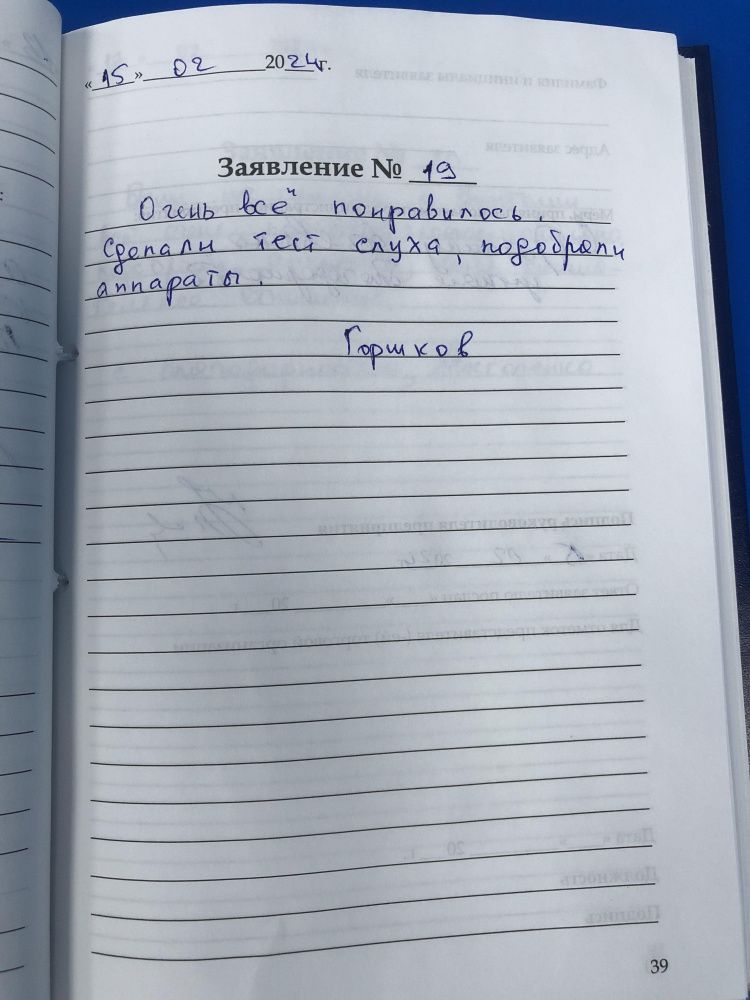 «15» 02 2024г.
Заявление № 19
Очень всё понравилось.
Сделали тест слуха, подобрали
аппараты.
Горшков
39